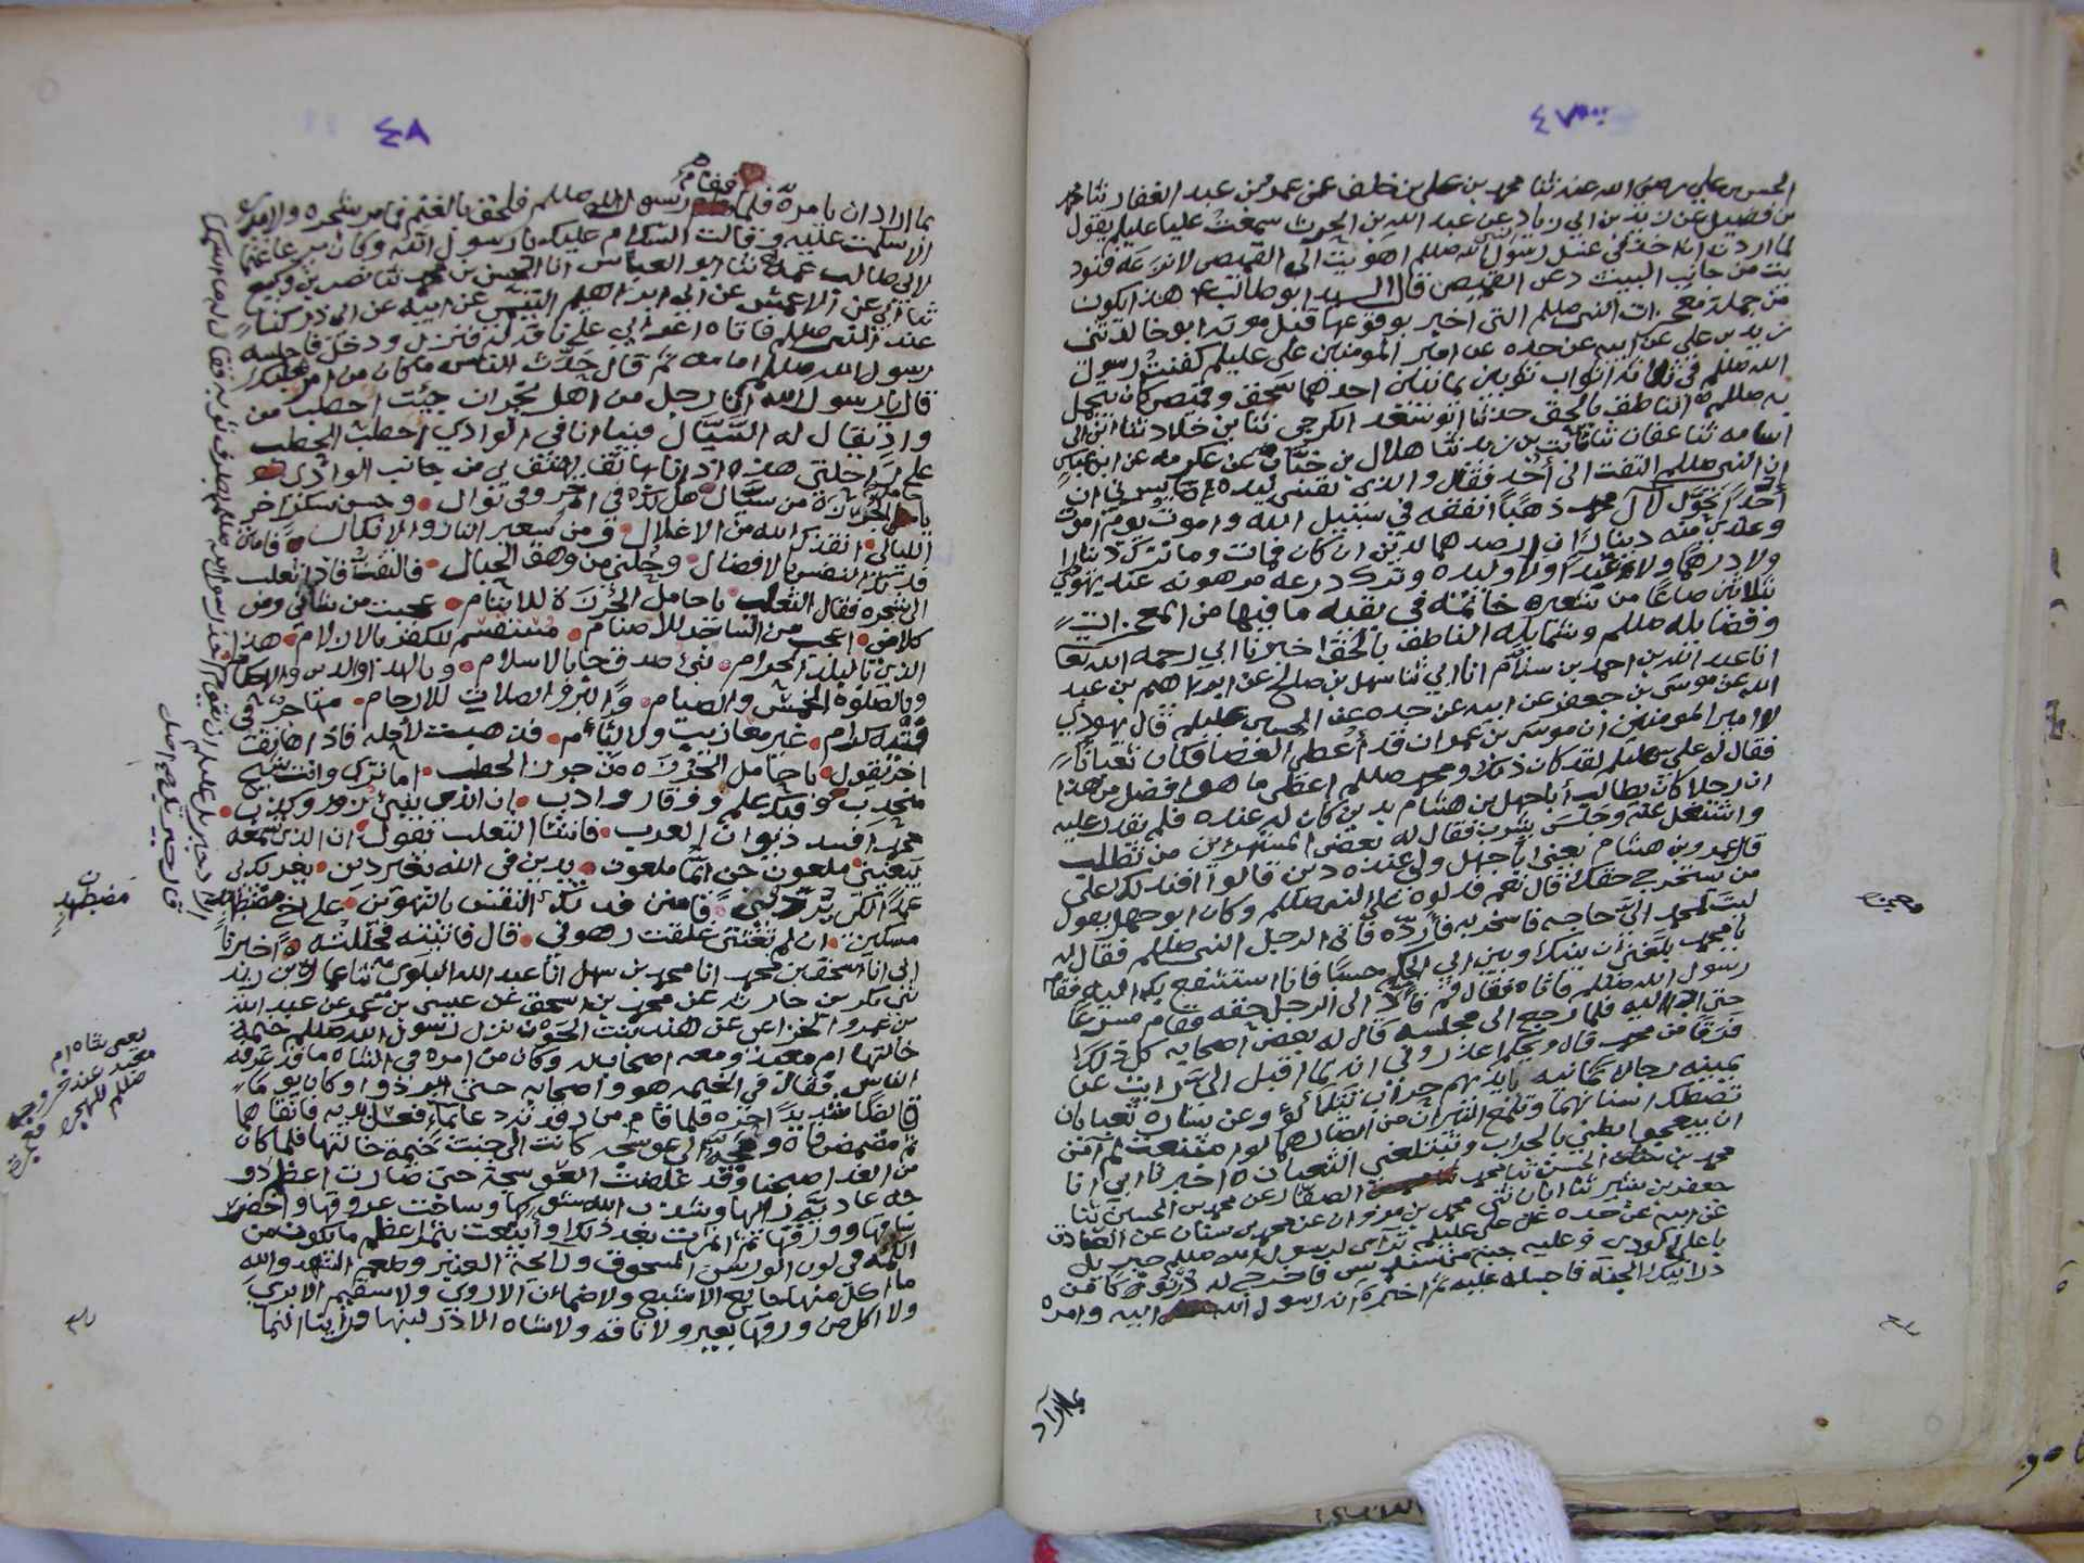 ٤٧
الحسن بن علي رضي الله عنه ثنا محمد بن علي بن خلف عن عمر بن عبد الغفار ثنا محمد
بن فضيل عن يزيد بن ابي زياد عن عبد الله بن الحرث سمعت عليا عليلم يقول
لما اردت ان اخذ في غسل رسول الله صللم اهويت الى القميص لانزعه فنود
يت من جانب البيت دعن القميص قال السيد ابو طالب هذا يكون
من جملة معجزات النبي صللم التي اخبر بوقوعها قبل موته ابو خالد ثني
زيد بن علي عن ابيه عن جده عن امير المومنين علي عليلم كفنت رسول
الله صللم في ثلاثة اثواب ثوبين يمانيين احدهما سحق وقميص كان يتجمل
به صللم الناطق بالحق حدثنا ابو سعد الكرجي ثنا بن خلاد ثنا ابن ابي
اسامه ثنا عفان ثنا ثابت بن يزيد ثنا هلال بن خباب عن عكرمه عن ابن عباس
ان النبي صللم التفت الى أحد فقال والذي نفسي بيده ما يسرني ان
أحدا تحول لآل محمد ذهبًا أنفقه في سبيل الله واموت يوم اموت
وعندي منه ديناران ارصدهما لدين ان كان فمات وما ترك دينارا
ولا درهما ولا عبدا ولا وليده وترك درعه مرهونه عند يهودي
بثلاثين صاعًا من شعير خاتمة في بقيه ما فيها من المعجزات
وفضايله صللم وشمايله الناطق بالحق اخبرنا ابي رحمه الله تعا
انا عبد الله بن احمد بن سلام انا ابي ثنا سهل بن صالح عن ابراهيم بن عبد
الله عن موسى بن جعفر عن ابيه عن جده عن الحسين عليلم قال يهودي
لامير المومنين ان موسى بن عمران قد أعطي العصا فكان ثعبانًا
فقال له علي عليلم لقد كان ذلك ومحمد صللم اعطي ما هو افضل من هذا
ان رجلا كان يطالب أبا جهل بن هشام بدين كان له عنده فلم يقدر عليه
واشتغل عنه وجلس يشرب فقال له بعض المستهزئين من تطلب
قال عمرو بن هشام يعني ابا جهل ولي عنده دين قالوا افندلك على
من يستخرج حقك قال نعم فدلوه على النبي صللم وكان ابو جهل يقول
ليت لمحمد الي حاجه فاسخر به فأردّه فاتى الرجل النبي صللم فقال له
يا محمد بلغني ان بينك وبين ابي الحكم حسبًا فانا استشفع بك اليه فقام
رسول الله صللم فاتاه فقال قم فأدّ الى الرجل حقه فقام مسرعًا
حتى ادى اليه فلما رجع الى مجلسه قال له بعض اصحابه كل ذلك
فَرَقًا من محمد قال ويحكم اعذروني انه لما اقبل الي رايت عن
يمينه رجالا ثمانيه بايديهم حراب تتلألؤ وعن يساره ثعبانان
تصطك اسنانهما وتلمع النيران من ابصارهما لو امتنعت لم آمن
ان يبعجوا بطني بالحراب ويبتلعني الثعبان ه اخبرنا ابي انا
محمد بن الحسن ثنا محمد الصفار عن محمد بن الحسين ثنا
جعفر بن بشير ثنا ابان ثني محمد بن مروان عن محمد بن سنان عن الصادق
عن ابيه عن جده عن علي عليلم تراءى لرسول الله صللم جبريل
باعلى الوادي وعليه جبة من سندس فاخرج له درنوك من
درانيك الجنة فاجلسه عليه ثم اخبره انه رسول الله اليه وامره
بما اراد
٤٨
بما اراد ان يامره فلما فقام رسول الله صللم فلحق بالغنم فما مر بشجره ولا مدره
الا سلمت عليه وقالت السلام عليك يا رسول الله وكان يرعا غنما
لابي طالب عمه ثنا ابو العباس انا الحسن بن محمد ثنا نصر بن وكيع
ثنا ابي عن الاعمش عن ابراهيم التيمي عن ابيه عن ابي ذر كنا
عند النبي صللم فاتاه اعرابي على ناقة له فنزل ودخل فاجلسه
رسول الله صللم امامه ثم قال حدّث الناس ما كان من امر ثعلبك
قال يا رسول الله انا رجل من اهل نجران جيت احطب من
وادٍ يقال له السيّال فبينا انا في الوادي احطب الحطب
على راحلتي هذه اذ انا بهاتف يهتف بي من جانب الوادي
يا حامل الجرزة من سيّال هل لك في اجر وفي نوال وحسن شكر اخر
الليالي انقذك الله من الاغلال ومن سعير النار والانكال فامنن
فدتك النفس بالافضال وحُلّني من وهق الحبال فالتفت فاذا ثعلب
الى شجره فقال الثعلب يا حامل الجُرزَة للايتام عجبت من شاني ومن
كلامي اعجب من الساجد للاصنام مستقسم للكفر بالازلام هذا
الذي بالبلد الحرام نبي صدق جا بالاسلام وبالهدى والدين والاحكام
وبالصلوة الخمس والصيام والبر والصلات للارحام مهاجر في
فتية كرام غير معازيب ولا ليام فذهبت لأحله فاذا هاتف
اخر يقول يا حامل الجُرْزَه من جرز الحطب اما ترى وانت شيخ
منجذب وفيك علم ووقار وادب ان الذي ينبئ زور وكذب
محمد افسد ديوان العرب فانشا الثعلب يقول ان الذي تسمعه
يبغيني ملعون جن ايّما ملعون يدين في الله بغير دين يغريك بي
عمدا لكي يرديني فامنن فدتك النفس بالتهوين على اخ مضطهد
مسكين ان لم تغثني غلقت رهوني قال فاتيته فحللته ه اخبرنا
ابي انا اسحق بن محمد انا محمد بن سهل انا عبد الله البلوى ثنا عماره بن زيد
ثني بكر بن حارثه عن محمد بن اسحق عن عيسى بن معمر عن عبد الله
بن عمرو الخزاعي عن هند بنت الجون نزل رسول الله صللم خيمة
خالتها ام معبد ومعه اصحابه وكان من امره في الشاه ما قد عرفه
الناس فقال في الخيمه هو واصحابه حتى ابردوا وكان يومًا
قايظًا شديدًا حره فلما قام من رقدته دعا بماء فغسل يديه فانقاهما
ثم مضمض فاه ومجّه الى عوسجه كانت الى جنب خيمة خالتها فلما كان
من الغد اصبحنا وقد غلضت العوسجة حتى صارت اعظم دو
حه عاديّه راها وشذب الله شوكها وساخت عروقها واخضر
ساقها وورقها ثم اثمرت بعد ذلك وأينعت بثمر اعظم ما يكون من
الكمه في لون الورس المسحوق ورايحة العنبر وطعم الشهد والله
ما اكل منها جايع الا شبع ولا ضمآن الا روي ولا سقيم الا بري
ولا اكل من ورقها بعير ولا ناقه ولا شاه الا در لبنها ورأينا النما
مضطهدٍ
يعني شاة ام
معبد عند خروجه
صللم للهجره